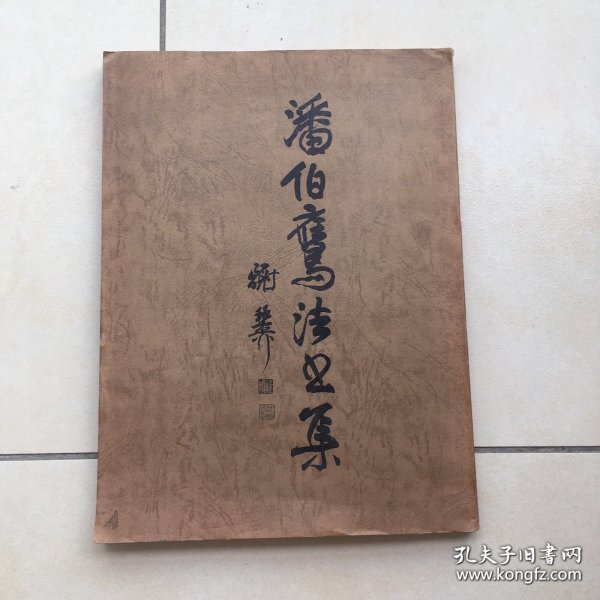 潘伯鹰法书集
孔夫子旧書网
www.kongfz.com